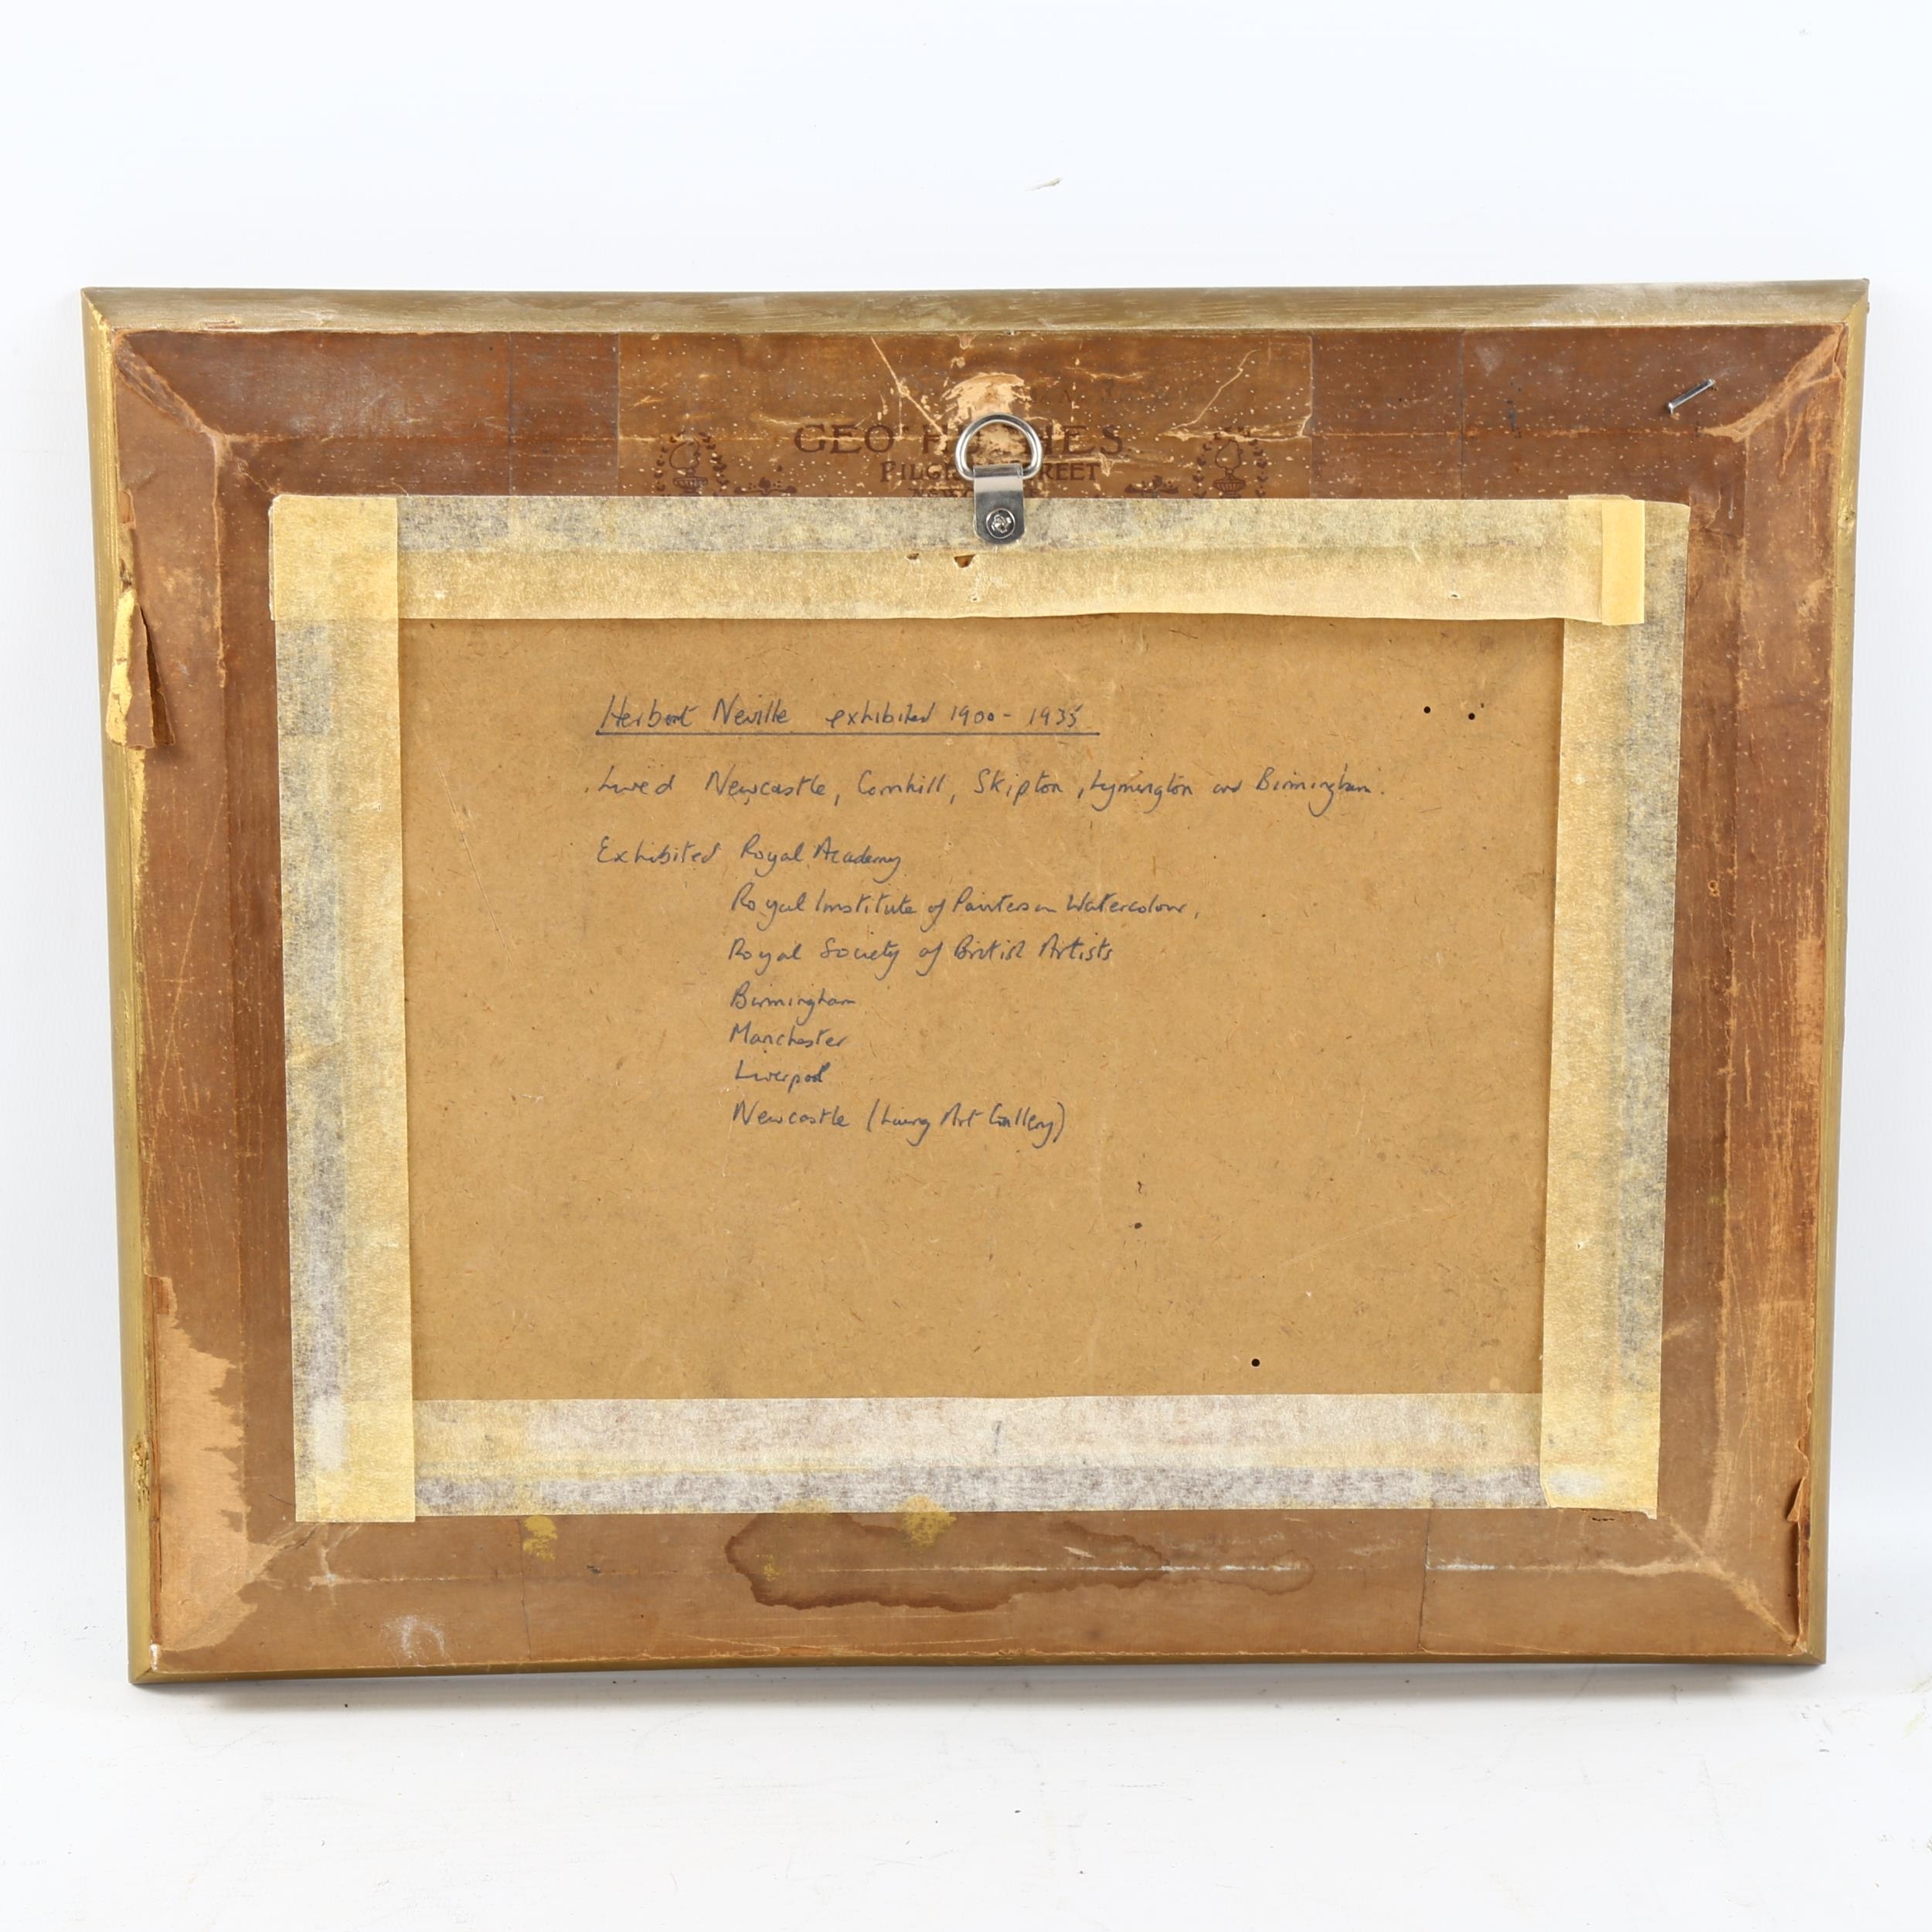 GEO
STREET
Herbert Neville exhibited 1900 - 1935
Lived Newcastle, Cornhill, Skipton, Lymington and Birmingham.
Exhibited Royal Academy
Royal Institute of Painters in Watercolour,
Royal Society of British Artists
Birmingham
Manchester
Liverpool
Newcastle (Laing Art Gallery)